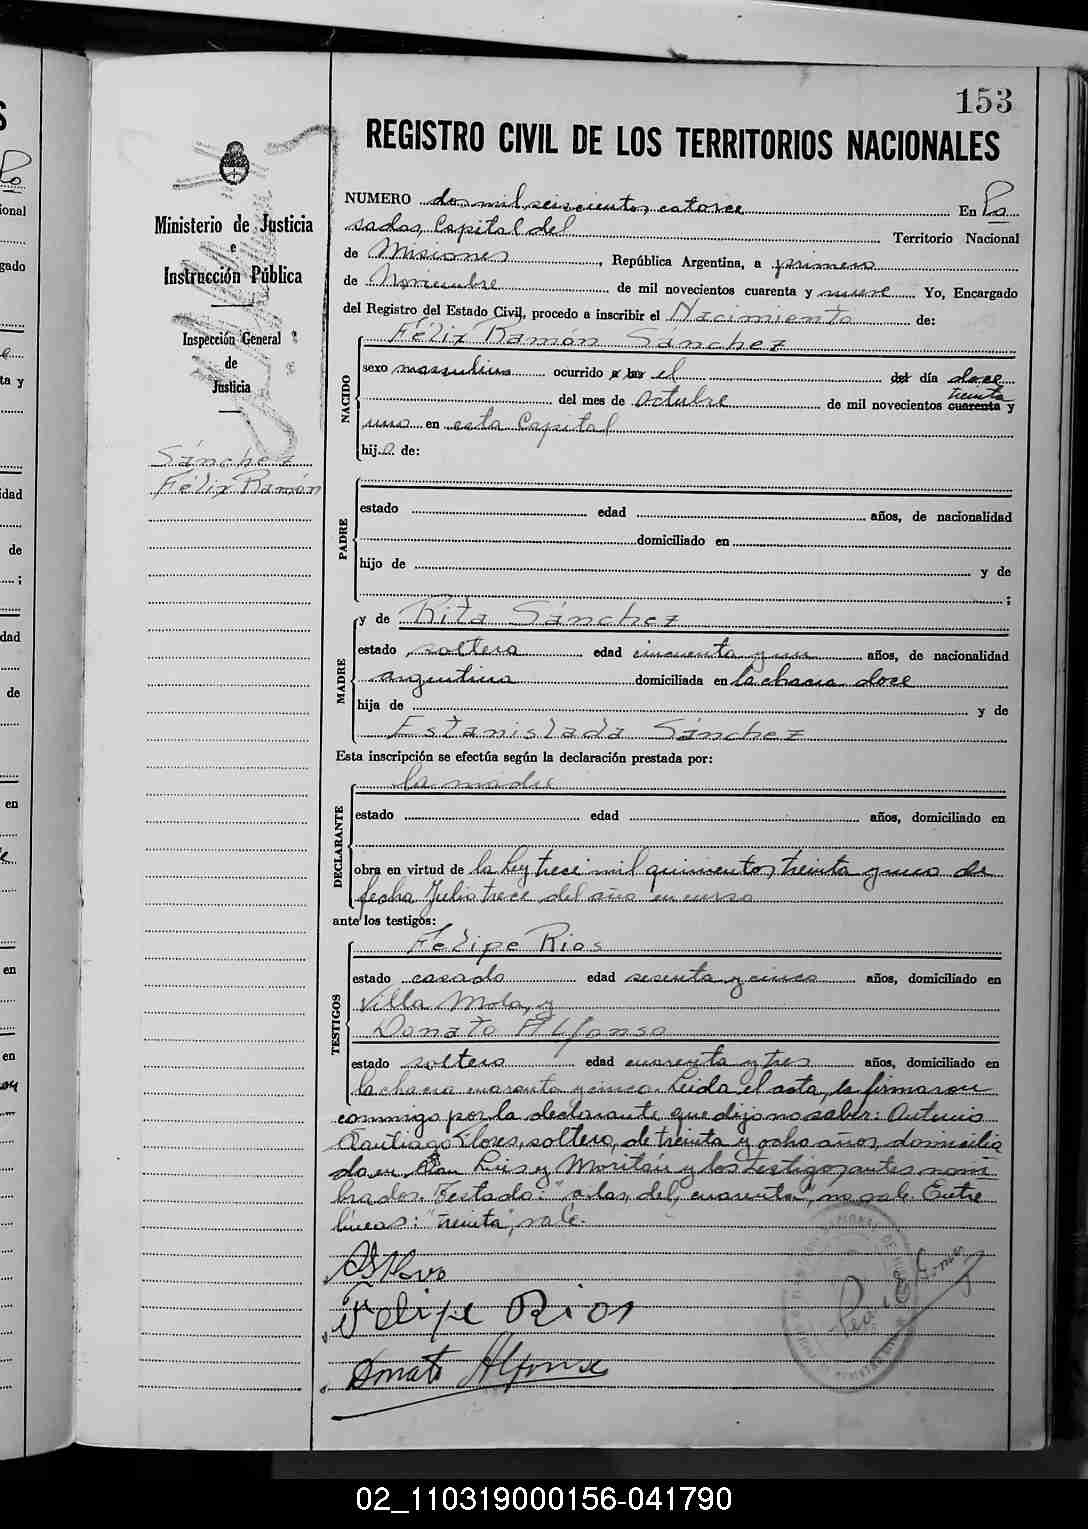 153
REGISTRO CIVIL DE LOS TERRITORIOS NACIONALES
Ministerio de Justicia
e
Instrucción Pública
Inspección General
de
Justicia
Sánchez
Félix Ramón
NUMERO dos mil seiscientos catorce En Po
sadas, Capital del Territorio Nacional
de Misiones, República Argentina, a primero
de Noviembre de mil novecientos cuarenta y nueve Yo, Encargado
del Registro del Estado Civil, procedo a inscribir el Nacimiento de:
Félix Ramón Sánchez
NACIDO
sexo masculino ocurrido a las el del día doce
treinta
del mes de Octubre de mil novecientos cuarenta y
uno en esta Capital
hijo de:
PADRE
estado edad años, de nacionalidad
domiciliado en
hijo de y de
;
MADRE
y de Rita Sánchez
estado soltera edad cincuenta y un años, de nacionalidad
argentina domiciliada en la chacra doce
hija de y de
Estanislada Sánchez
Esta inscripción se efectúa según la declaración prestada por:
la madre
DECLARANTE
estado edad años, domiciliado en
obra en virtud de la Ley trece mil quinientos treinta y uno de
fecha Julio trece del año en curso
ante los testigos:
TESTIGOS
Felipe Rios
estado casado edad sesenta y cinco años, domiciliado en
Villa Mola, y
Donato Alfonso
estado soltero edad cuarenta y tres años, domiciliado en
la chacra cuarenta y cinco. Leida el acta, la firmaron
conmigo por la declarante que dijo no saber:
Santiago Flores, soltero, de treinta y ocho años, domicilia
do en San Luis y Moritán y los testigos antes nom
brados. Testado: "a las, del, cuarenta", no vale. Entre
lineas: "treinta", vale.
Felipe Rios
Donato Alfonso
02_110319000156-041790